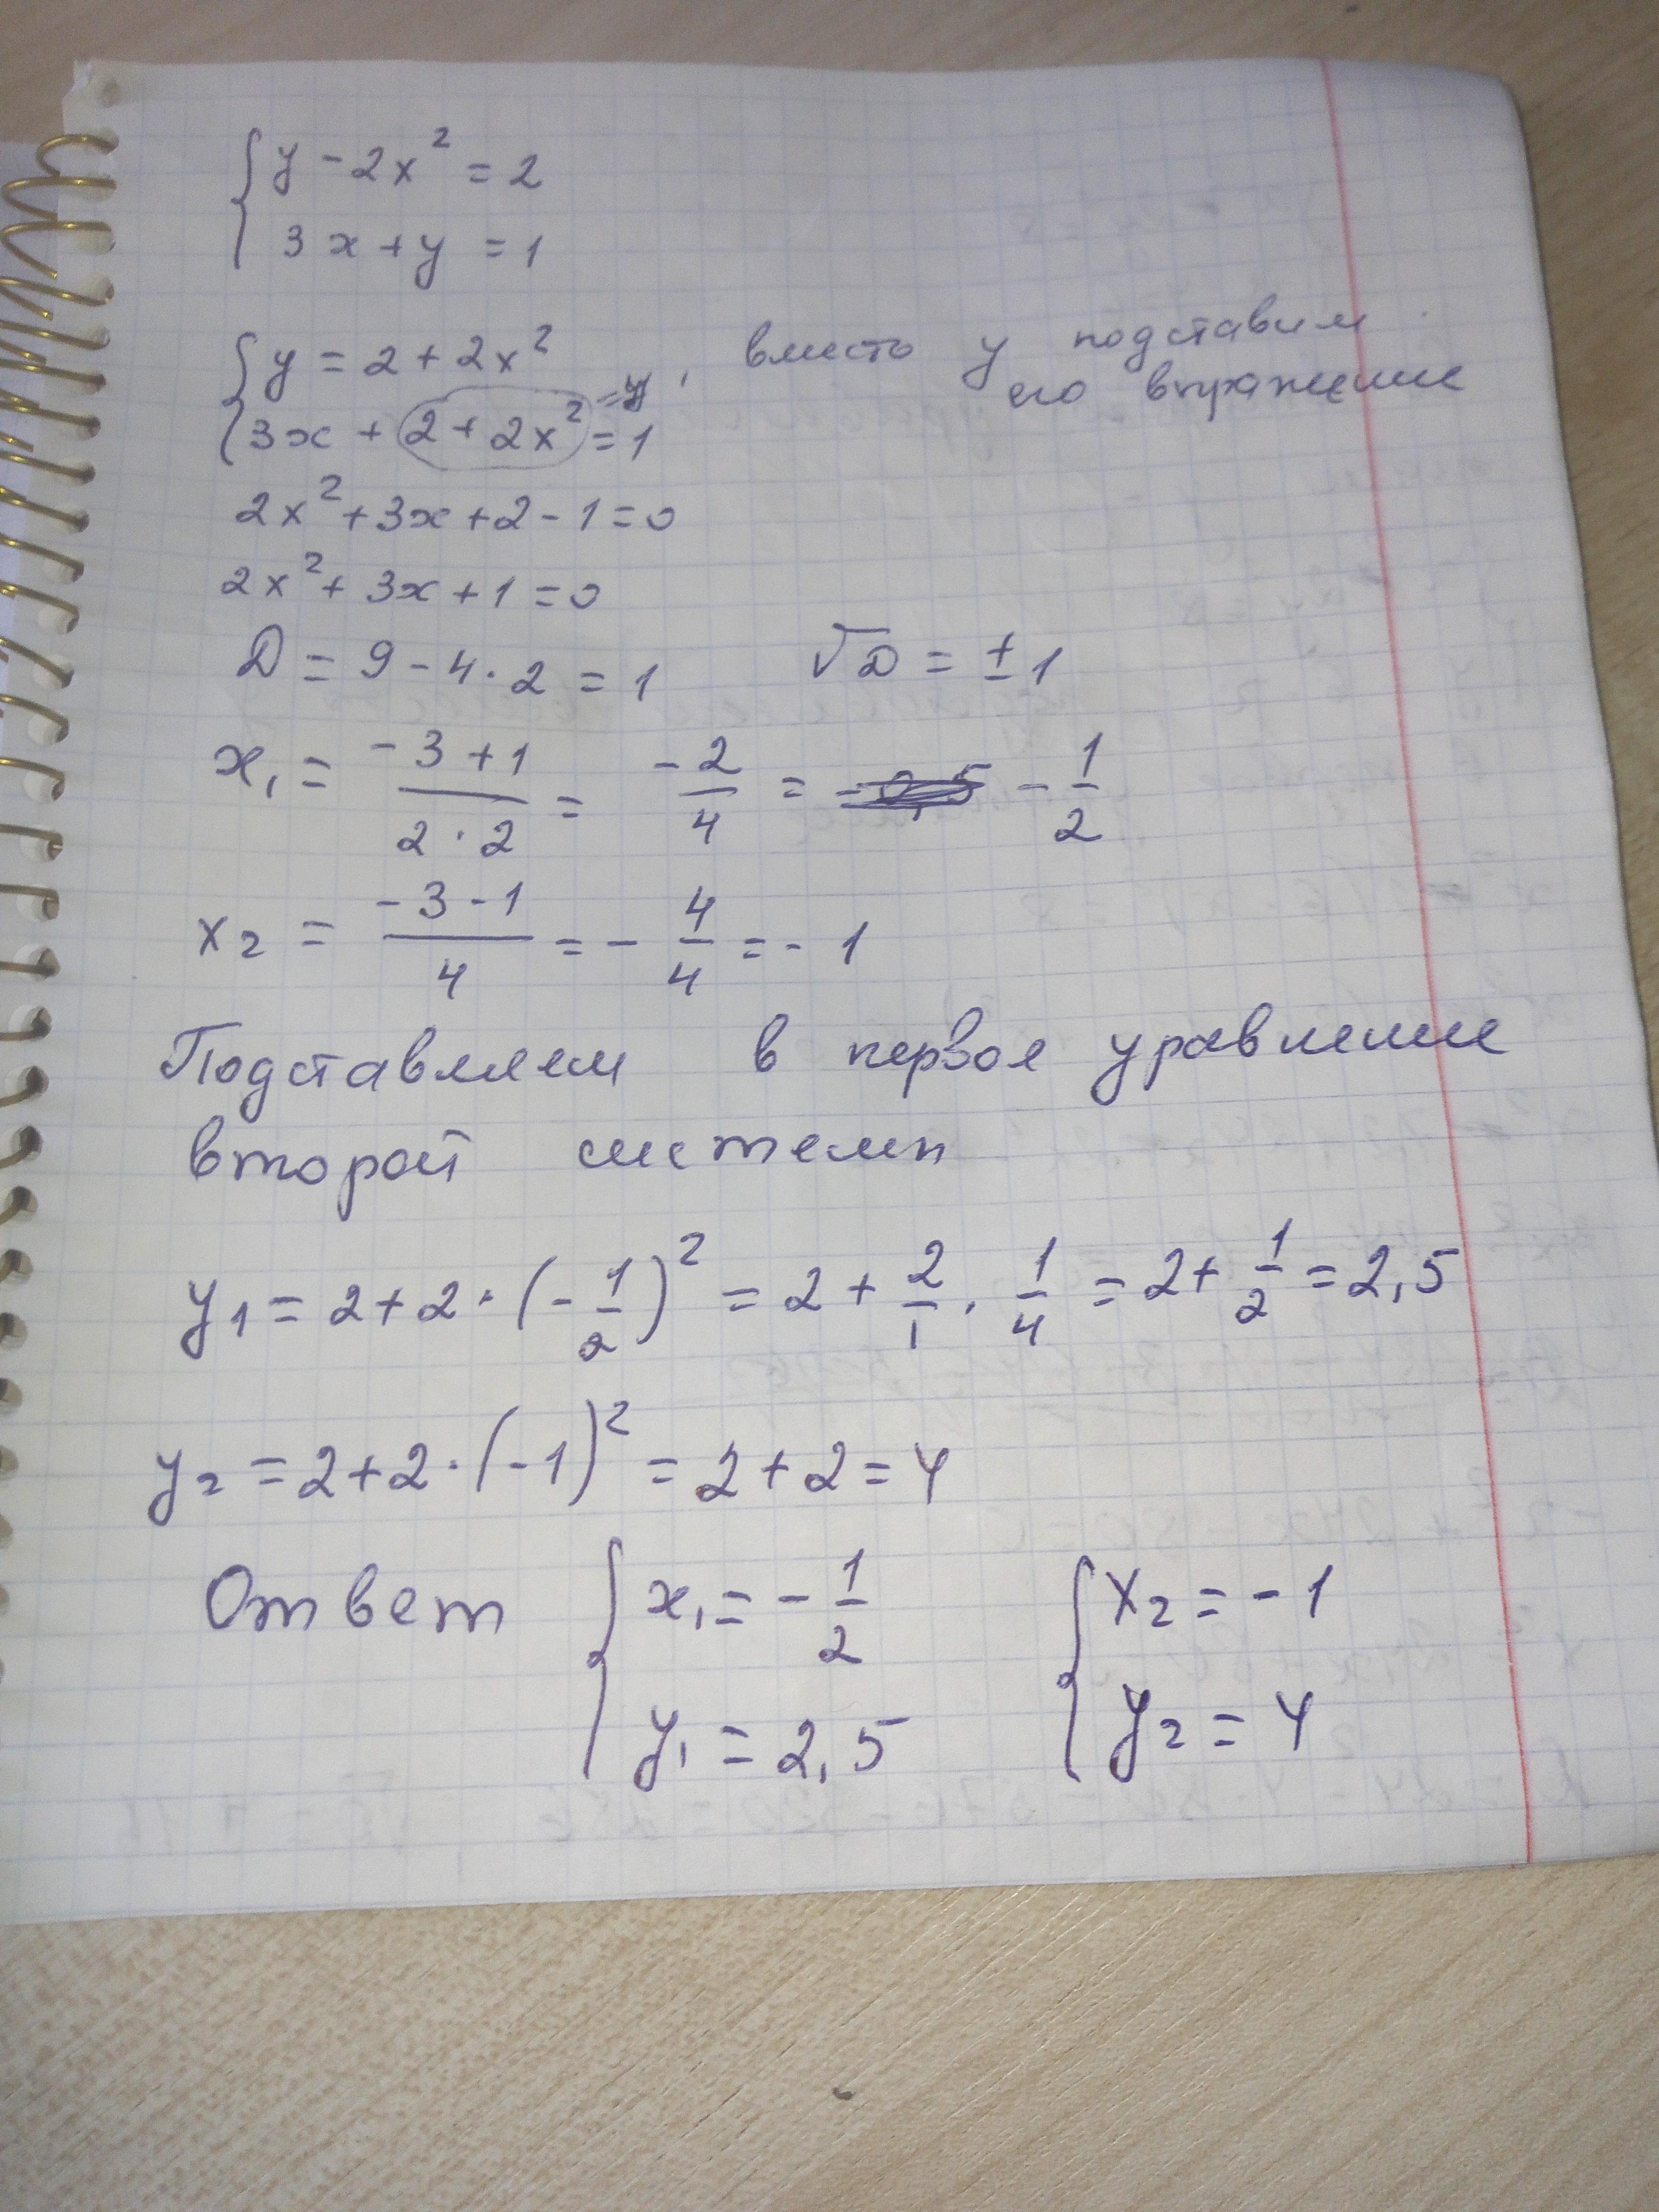 { y - 2x² = 2
3x + y = 1
{ y = 2 + 2x² , вместо y подставим
его выражение
3x + 2 + 2x² = 1
2x² + 3x + 2 - 1 = 0
2x² + 3x + 1 = 0
D = 9 - 4 · 2 = 1 √D = ± 1
x₁ = (-3 + 1)/(2 · 2) = -2/4 = - 1/2
x₂ = (-3 - 1)/4 = - 4/4 = - 1
Подставляем в первое уравнение
второй системы
y₁ = 2 + 2 · (- 1/2)² = 2 + 2/1 · 1/4 = 2 + 1/2 = 2,5
y₂ = 2 + 2 · (-1)² = 2 + 2 = 4
Ответ { x₁ = - 1/2 { x₂ = - 1
y₁ = 2,5 y₂ = 4